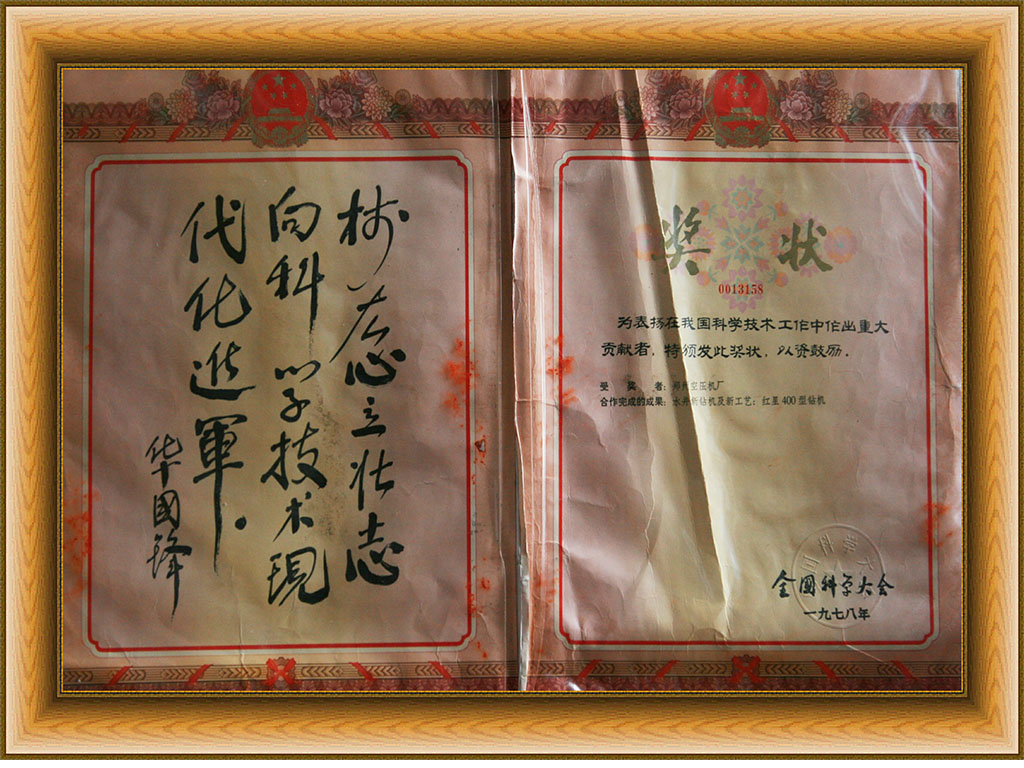 树雄心立壮志
向科学技术現
代化進軍。
华國锋
奖状
0013158
为表扬在我国科学技术工作中作出重大
贡献者，特颁发此奖状，以资鼓励。
受奖者：郑州空压机厂
合作完成的成果：水井新钻机及新工艺：红星400型钻机
全國科学大会
一九七八年